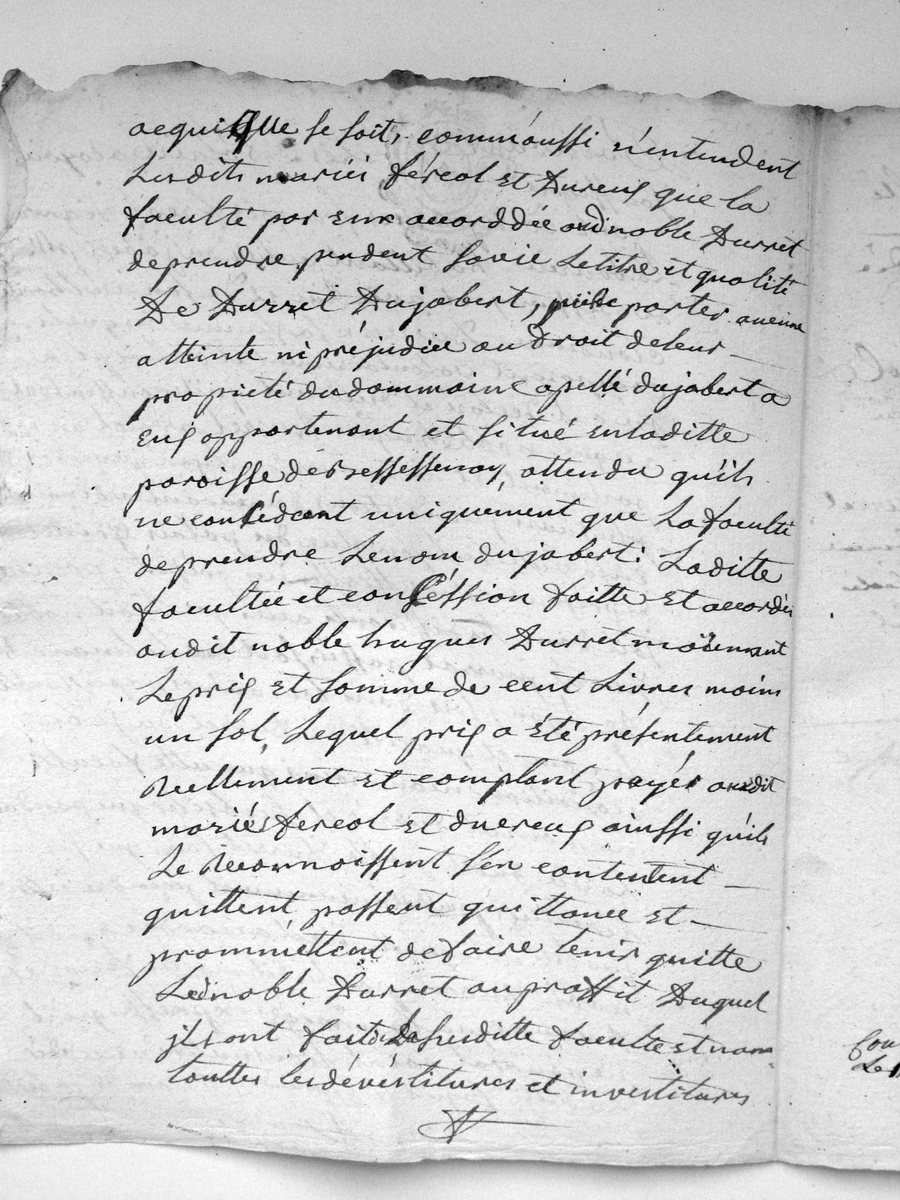 acquise se soit, comm'aussi n'entendent
Lesdits mariés féreol et Ducreux que la
faculté par eux accorddée audnoble Durret
deprendre pendent savie Letitre et qualité
De Durret Dujabert, puisse porter aucune
atteinte ni préjudice au Droit deleur
propieté dudommaine apellé dujabert a
eux appartenant et situé enladitte
paroisse de attendu qu'ils
ne concèdent uniquement que La faculté
deprendre Lenom dujabert: Laditte
facultée et concéssion faitte et accordée
audit noble hugues Durret moïennant
Leprix et somme de cent Livres moins
un sol, Lequel prix a été présentement
réellement et comptant payés audit
mariés fereol et ducreux ainssi qu'ils
Le reconnoissent s'en contentent
quittent, passent quittance et
prommettent defaire tenir quitte
Led noble Durret auproffit Duquel
jls ont fait de la susditte faculté et nom
touttes les dévéstitures et investitures
Cou
Le